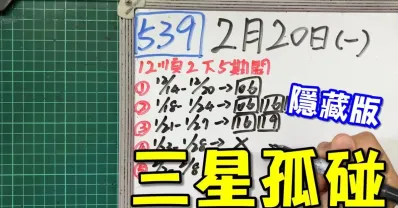 539 2月20日(一)
12順2下5期開
① 12/14-12/20→06
② 1/18-1/24→06 16
③ 1/21-1/27→16 19
隱藏版
三星孤碰